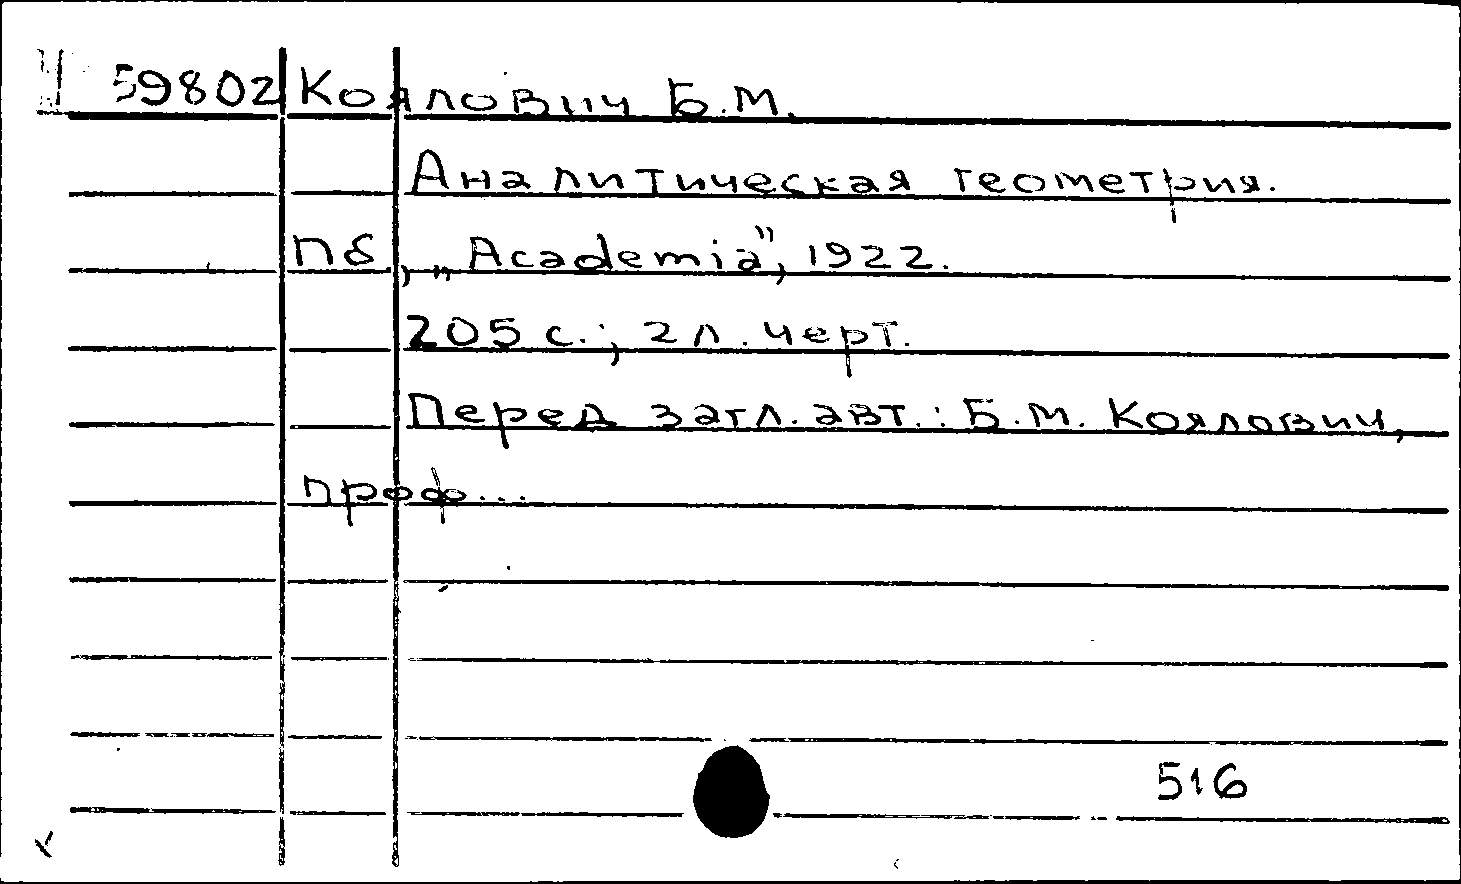 59802 Коялович Б.М.
Аналитическая геометрия.
Пб., „Academia”, 1922.
205 с.; 2 л. черт.
Перед загл. авт.: Б.М. Коялович,
проф...
516